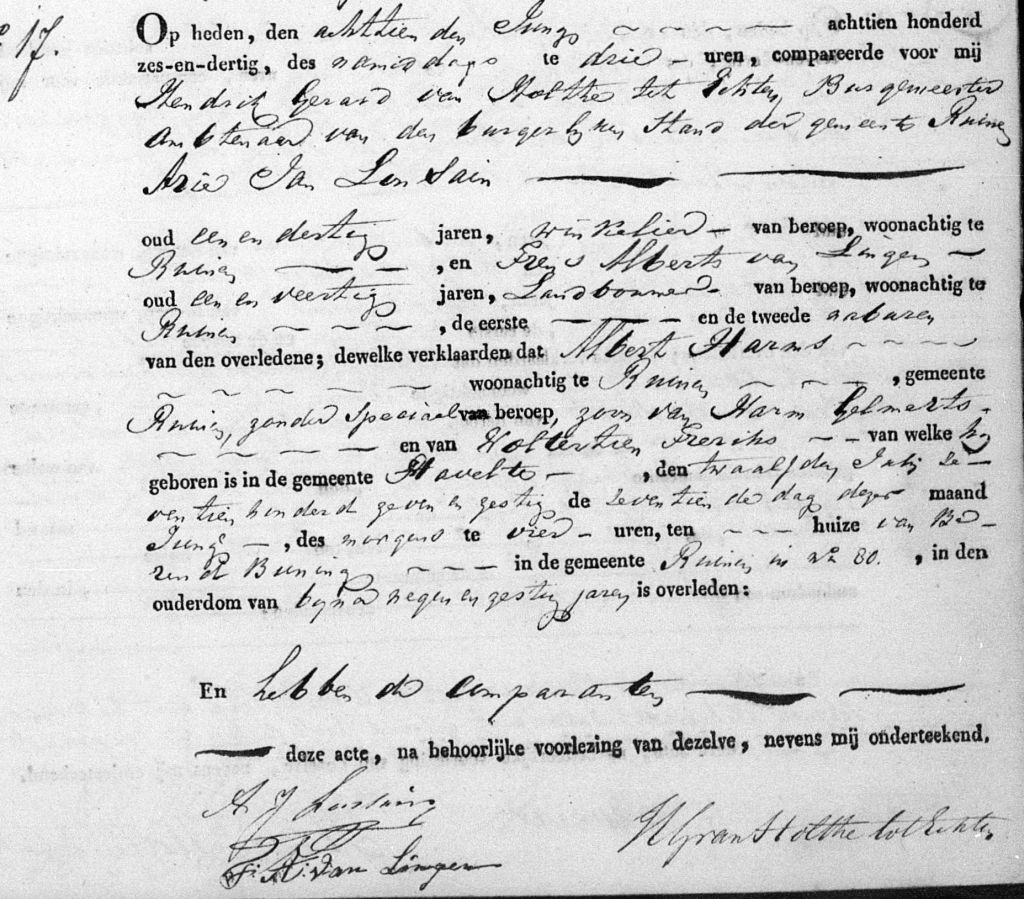 No 17.
Op heden, den achttienden Junij achttien honderd
zes-en-dertig, des namiddags te drie uren, compareerde voor mij
Hendrik Gerard van Holthe tot Echten, Burgemeester
ambtenaar van den burgerlyken stand der gemeente Ruinen
Arie Jan Lensain
oud een en dertig jaren, winkelier van beroep, woonachtig te
Ruinen, en Freris Alberts van Lingen
oud een en veertig jaren, Landbouwer van beroep, woonachtig te
Ruinen, de eerste en de tweede naburen
van den overledene; dewelke verklaarden dat Albert Harms
woonachtig te Ruinen, gemeente
Ruinen, zonder speciaal van beroep, zoon van Harm Helmerts
en van Woltertien Freriks van welke hy
geboren is in de gemeente Havelte, den twaalfden Julij ze-
ventien honderd zeven en zestig de zeventiende dag dezer maand
Junij, des morgens te vier uren, ten huize van Be-
rend Buning in de gemeente Ruinen in No 80., in den
ouderdom van byna negen en zestig jaren is overleden:
En hebben de comparanten
deze acte, na behoorlijke voorlezing van dezelve, nevens mij onderteekend.
A J
HGvanHolthe tot Echten
F: A: van Lingen